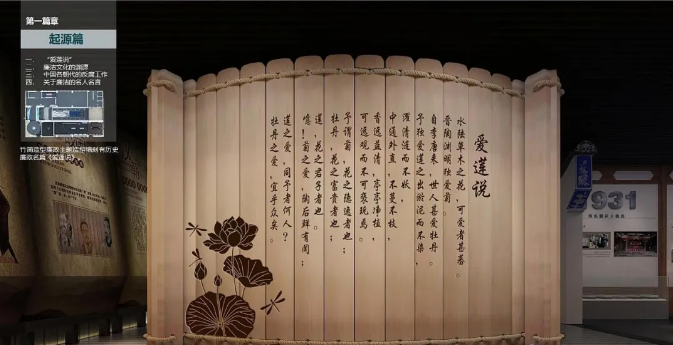 第一篇章
起源篇
一、 “爱莲说”
二、 廉洁文化的渊源
三、 中国各朝代的反腐工作
四、 关于廉洁的名人名言
竹简造型廉政主题造型镌刻有历史
廉政名篇《爱莲说》
爱莲说
水陆草木之花，可爱者甚蕃。
晋陶渊明独爱菊。
自李唐来，世人甚爱牡丹。
予独爱莲之出淤泥而不染，
濯清涟而不妖，
中通外直，不蔓不枝，
香远益清，亭亭净植，
可远观而不可亵玩焉。
予谓菊，花之隐逸者也；
牡丹，花之富贵者也；
莲，花之君子者也。
噫！菊之爱，陶后鲜有闻；
莲之爱，同予者何人？
牡丹之爱，宜乎众矣。
931